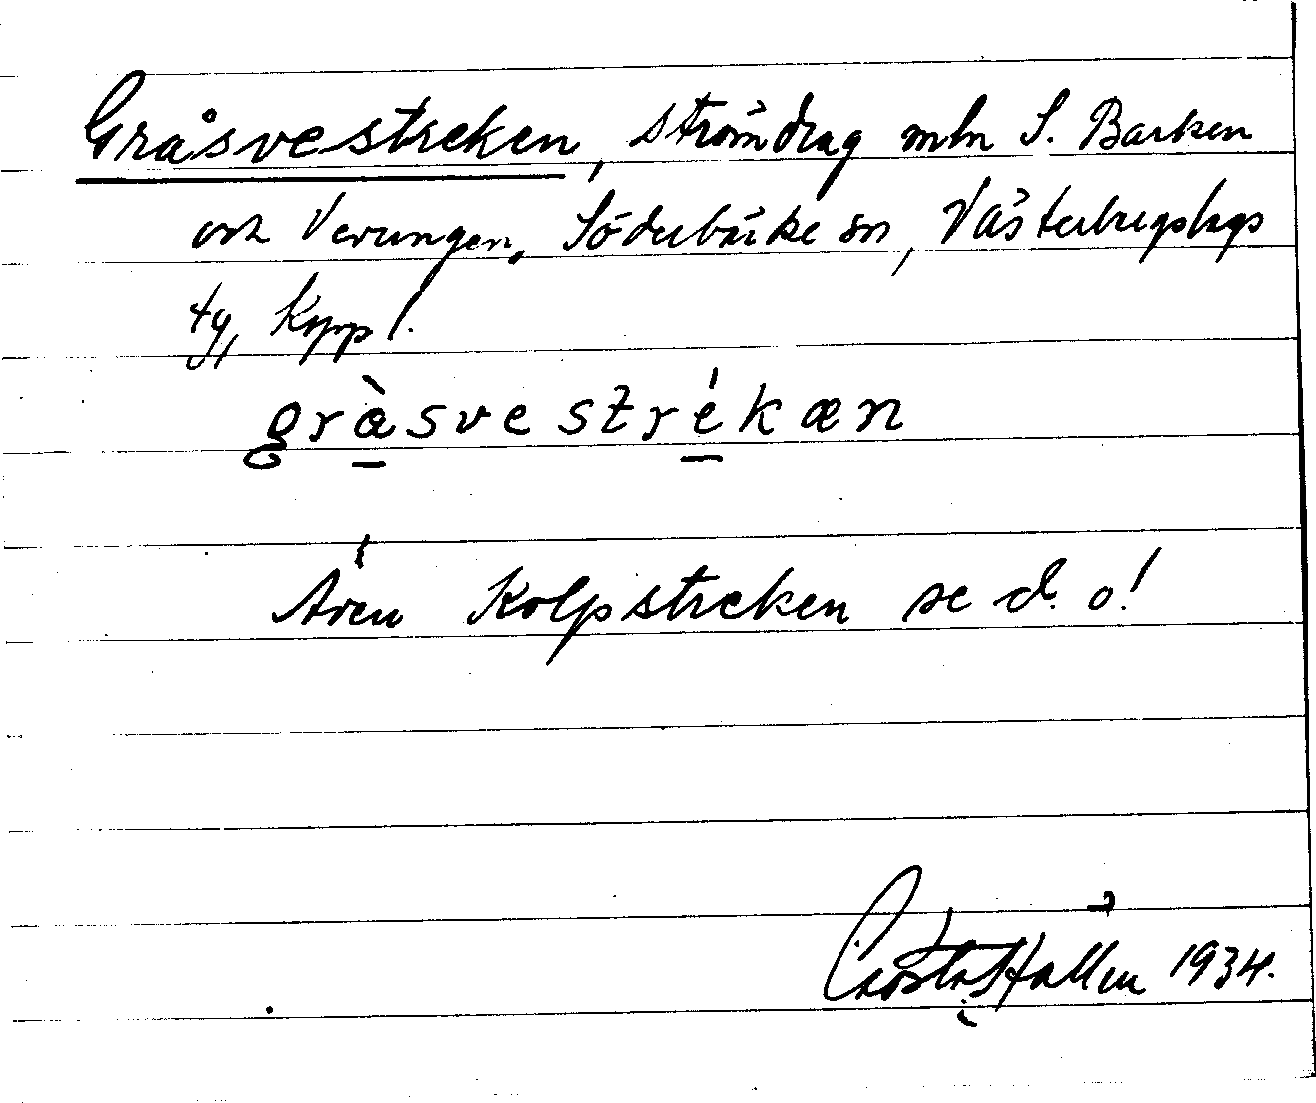 Gråsvestreken, strömdrag mln S. Barken
och Verungen, Söderbärke sn, Västerbergslags
tg, Kopp l.
gràsvestrékæn
Även Kolpstreken se d. o!
Gösta Hallén 1934.